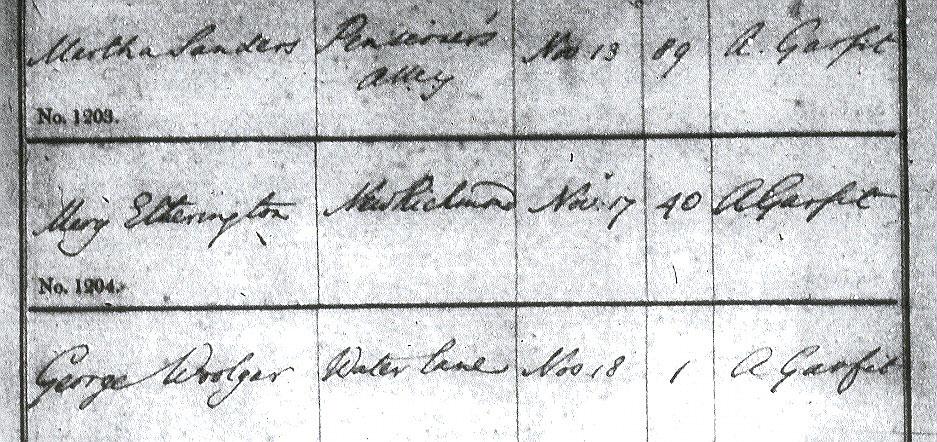 Martha Sanders Pensioner's Nov 13 89 A. Garfit
Alley
No. 1203.
Mary Etherington New Richmond Nov. 17 40 A Garfit
No. 1204.
George Woolger Water Lane Nov 18 1 A Garfit